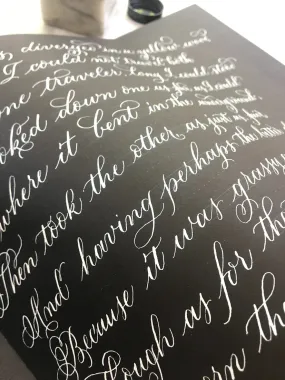 s diverged in a yellow wood
I could not travel both
one traveler, long I stood
ooked down one as far as I could
where it bent in the undergrowth
Then took the other, as just as fair
And having perhaps the better
Because it was grassy
Though as for tha
orn the